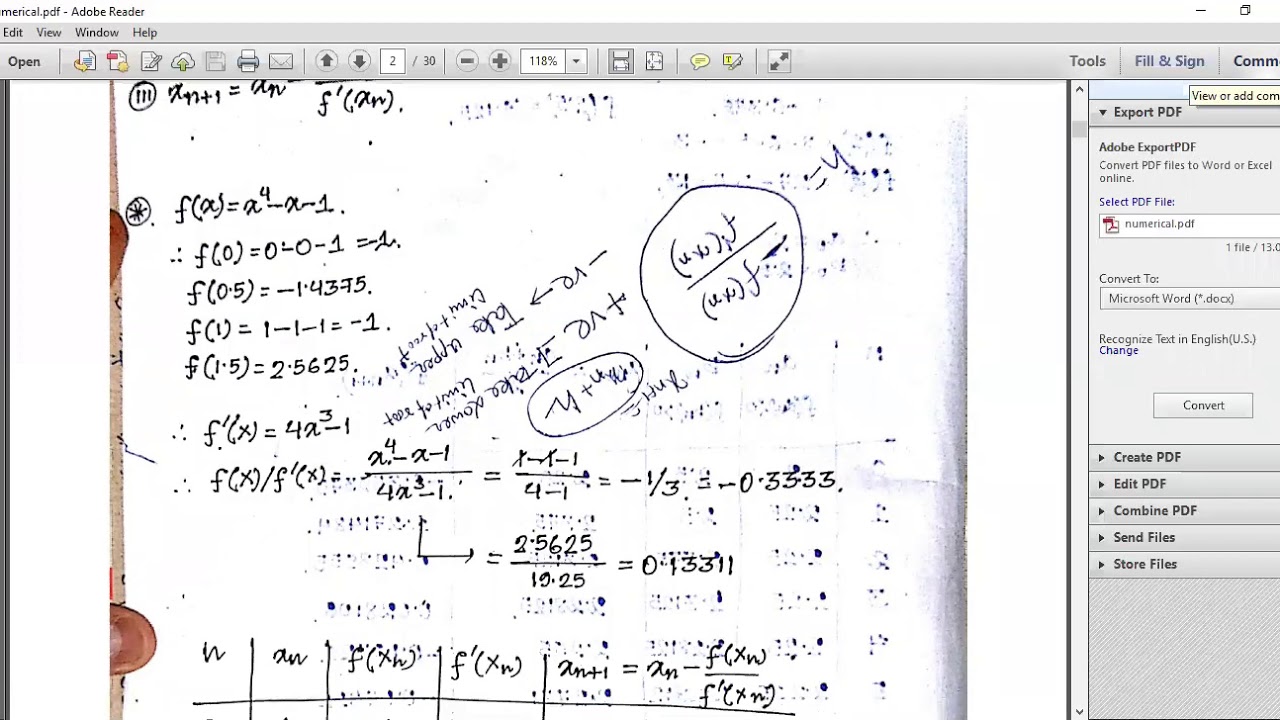 numerical.pdf - Adobe Reader
Edit View Window Help
Open 2 / 30 118% Tools Fill & Sign Comm
View or add com
(III) xn+1 = xn - f'(xn).
f(x)=x⁴-x-1.
∴ f(0)=0-0-1 =-1.
f(0.5)=-1.4375.
f(1)=1-1-1=-1.
f(1.5)=2.5625.
-ve → Take upper limit of root
+ve → Take lower limit of root
f(xn)
f'(xn)
= h
xn+1 = xn+h
∴ f'(x)=4x³-1
∴ f(x)/f'(x)= x⁴-x-1 / 4x³-1. = 1-1-1 / 4-1 = -1/3. = -0.3333.
= 2.5625 / 19.25 = 0.13311
n xn f(xn) f'(xn) xn+1 = xn - f(xn) / f'(xn)
Export PDF
Adobe ExportPDF
Convert PDF files to Word or Excel
online.
Select PDF File:
numerical.pdf
1 file / 13.0
Convert To:
Microsoft Word (*.docx)
Recognize Text in English(U.S.)
Change
Convert
Create PDF
Edit PDF
Combine PDF
Send Files
Store Files